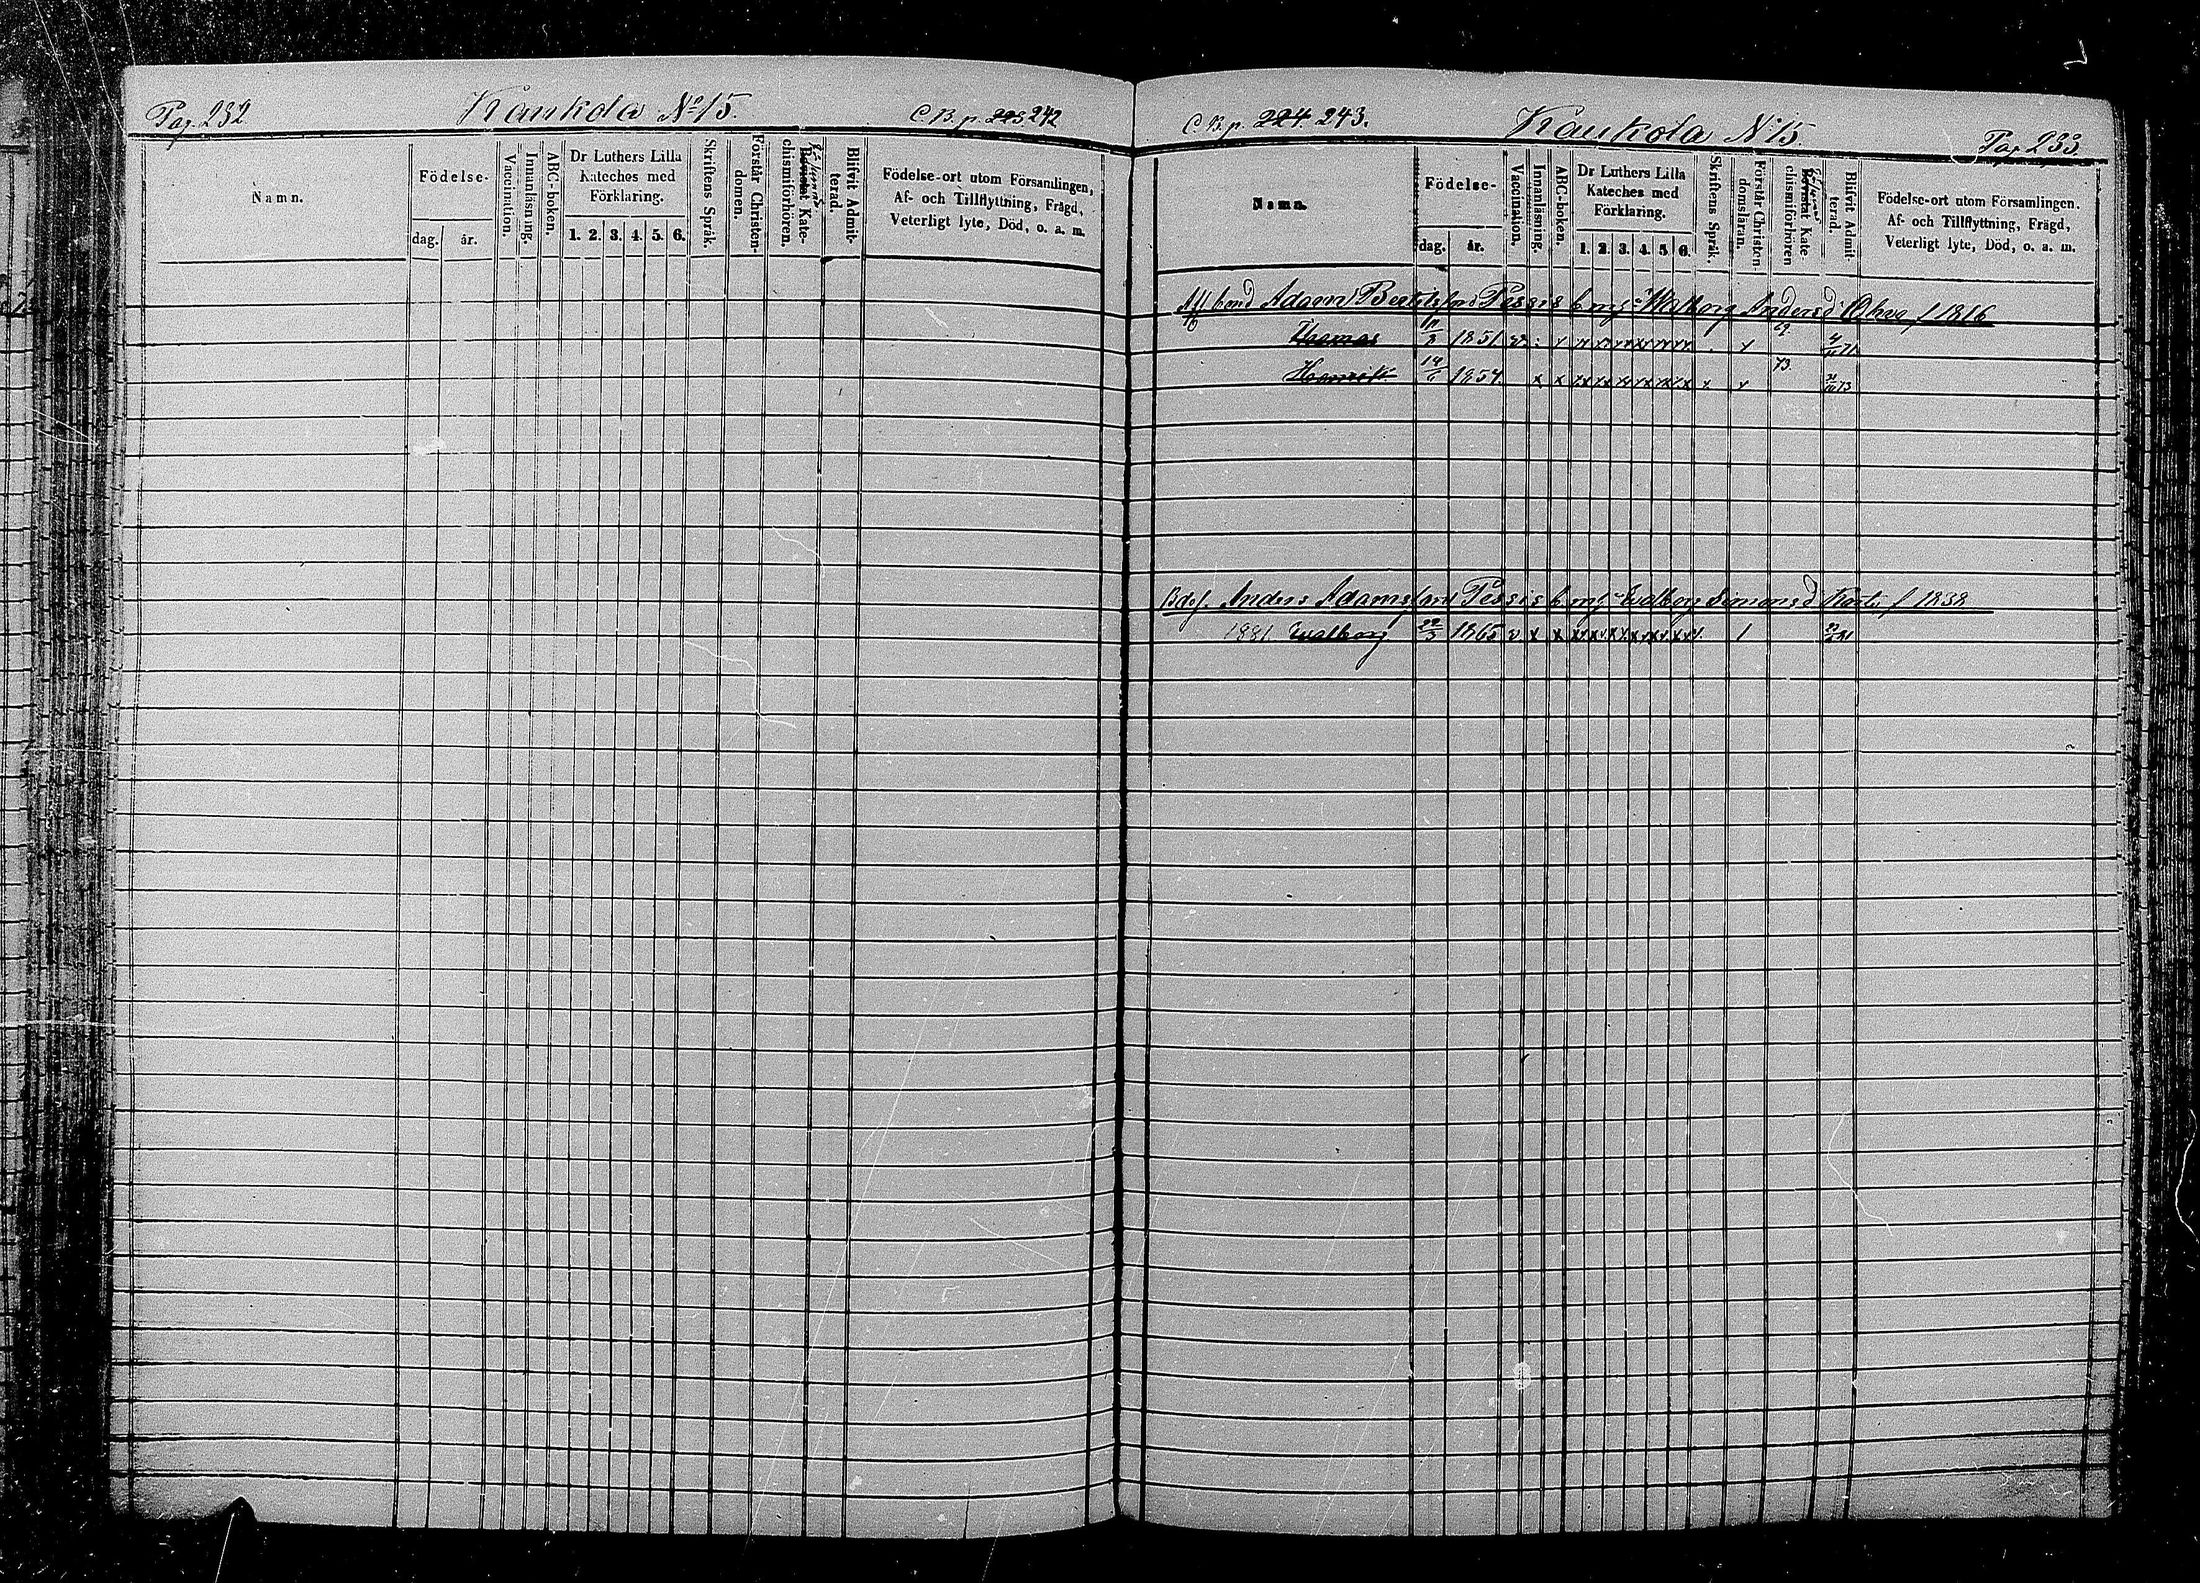 Pag. 232 Kaukola No 15. C.B.p. 223 242
Namn.
Födelse-
dag. år.
Vaccination.
Innanläsning.
ABC-boken.
Dr Luthers Lilla
Kateches med
Förklaring.
1. 2. 3. 4. 5. 6.
Skriftens Språk.
Förstår Christen-
domen.
Bevistat Kate-
chismiförhören.
Blifvit Admit-
terad.
Födelse-ort utom Församlingen,
Af- och Tillflyttning, Frägd,
Veterligt lyte, Död, o. a. m.
C.B.p. 224. 243. Kaukola No 15. Pag 233.
Namn.
Födelse-
dag. år.
Vaccination.
Innanläsning.
ABC-boken.
Dr Luthers Lilla
Kateches med
Förklaring.
1. 2. 3. 4. 5. 6.
Skriftens Språk.
Förstår Christen-
domsläran.
Bevistat Kate
chismiförhören
Blifvit Admit-
terad.
Födelse-ort utom Församlingen.
Af- och Tillflyttning, Frägd,
Veterligt lyte, Död, o. a. m.
Adam Bertilsson Pessis Walborg Andersd f 1816
Thomas 1851 x x x 69.
Henrik 14/6 1854 x x x x 73. 73
Anders Adamsson Pessis Walborg Simonsd f 1838
1881 Walborg 22/3 1865 v x x 81